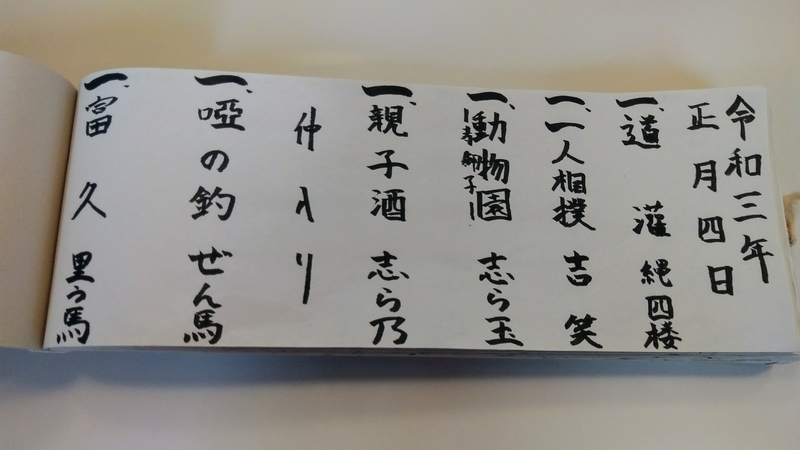 令和三年
正月四日
一、道灌 縄四楼
一、一人相撲 吉笑
一、動物園 志ら玉
一、親子酒 志ら乃
仲入り
一、唖の釣 ぜん馬
一、富久 里う馬